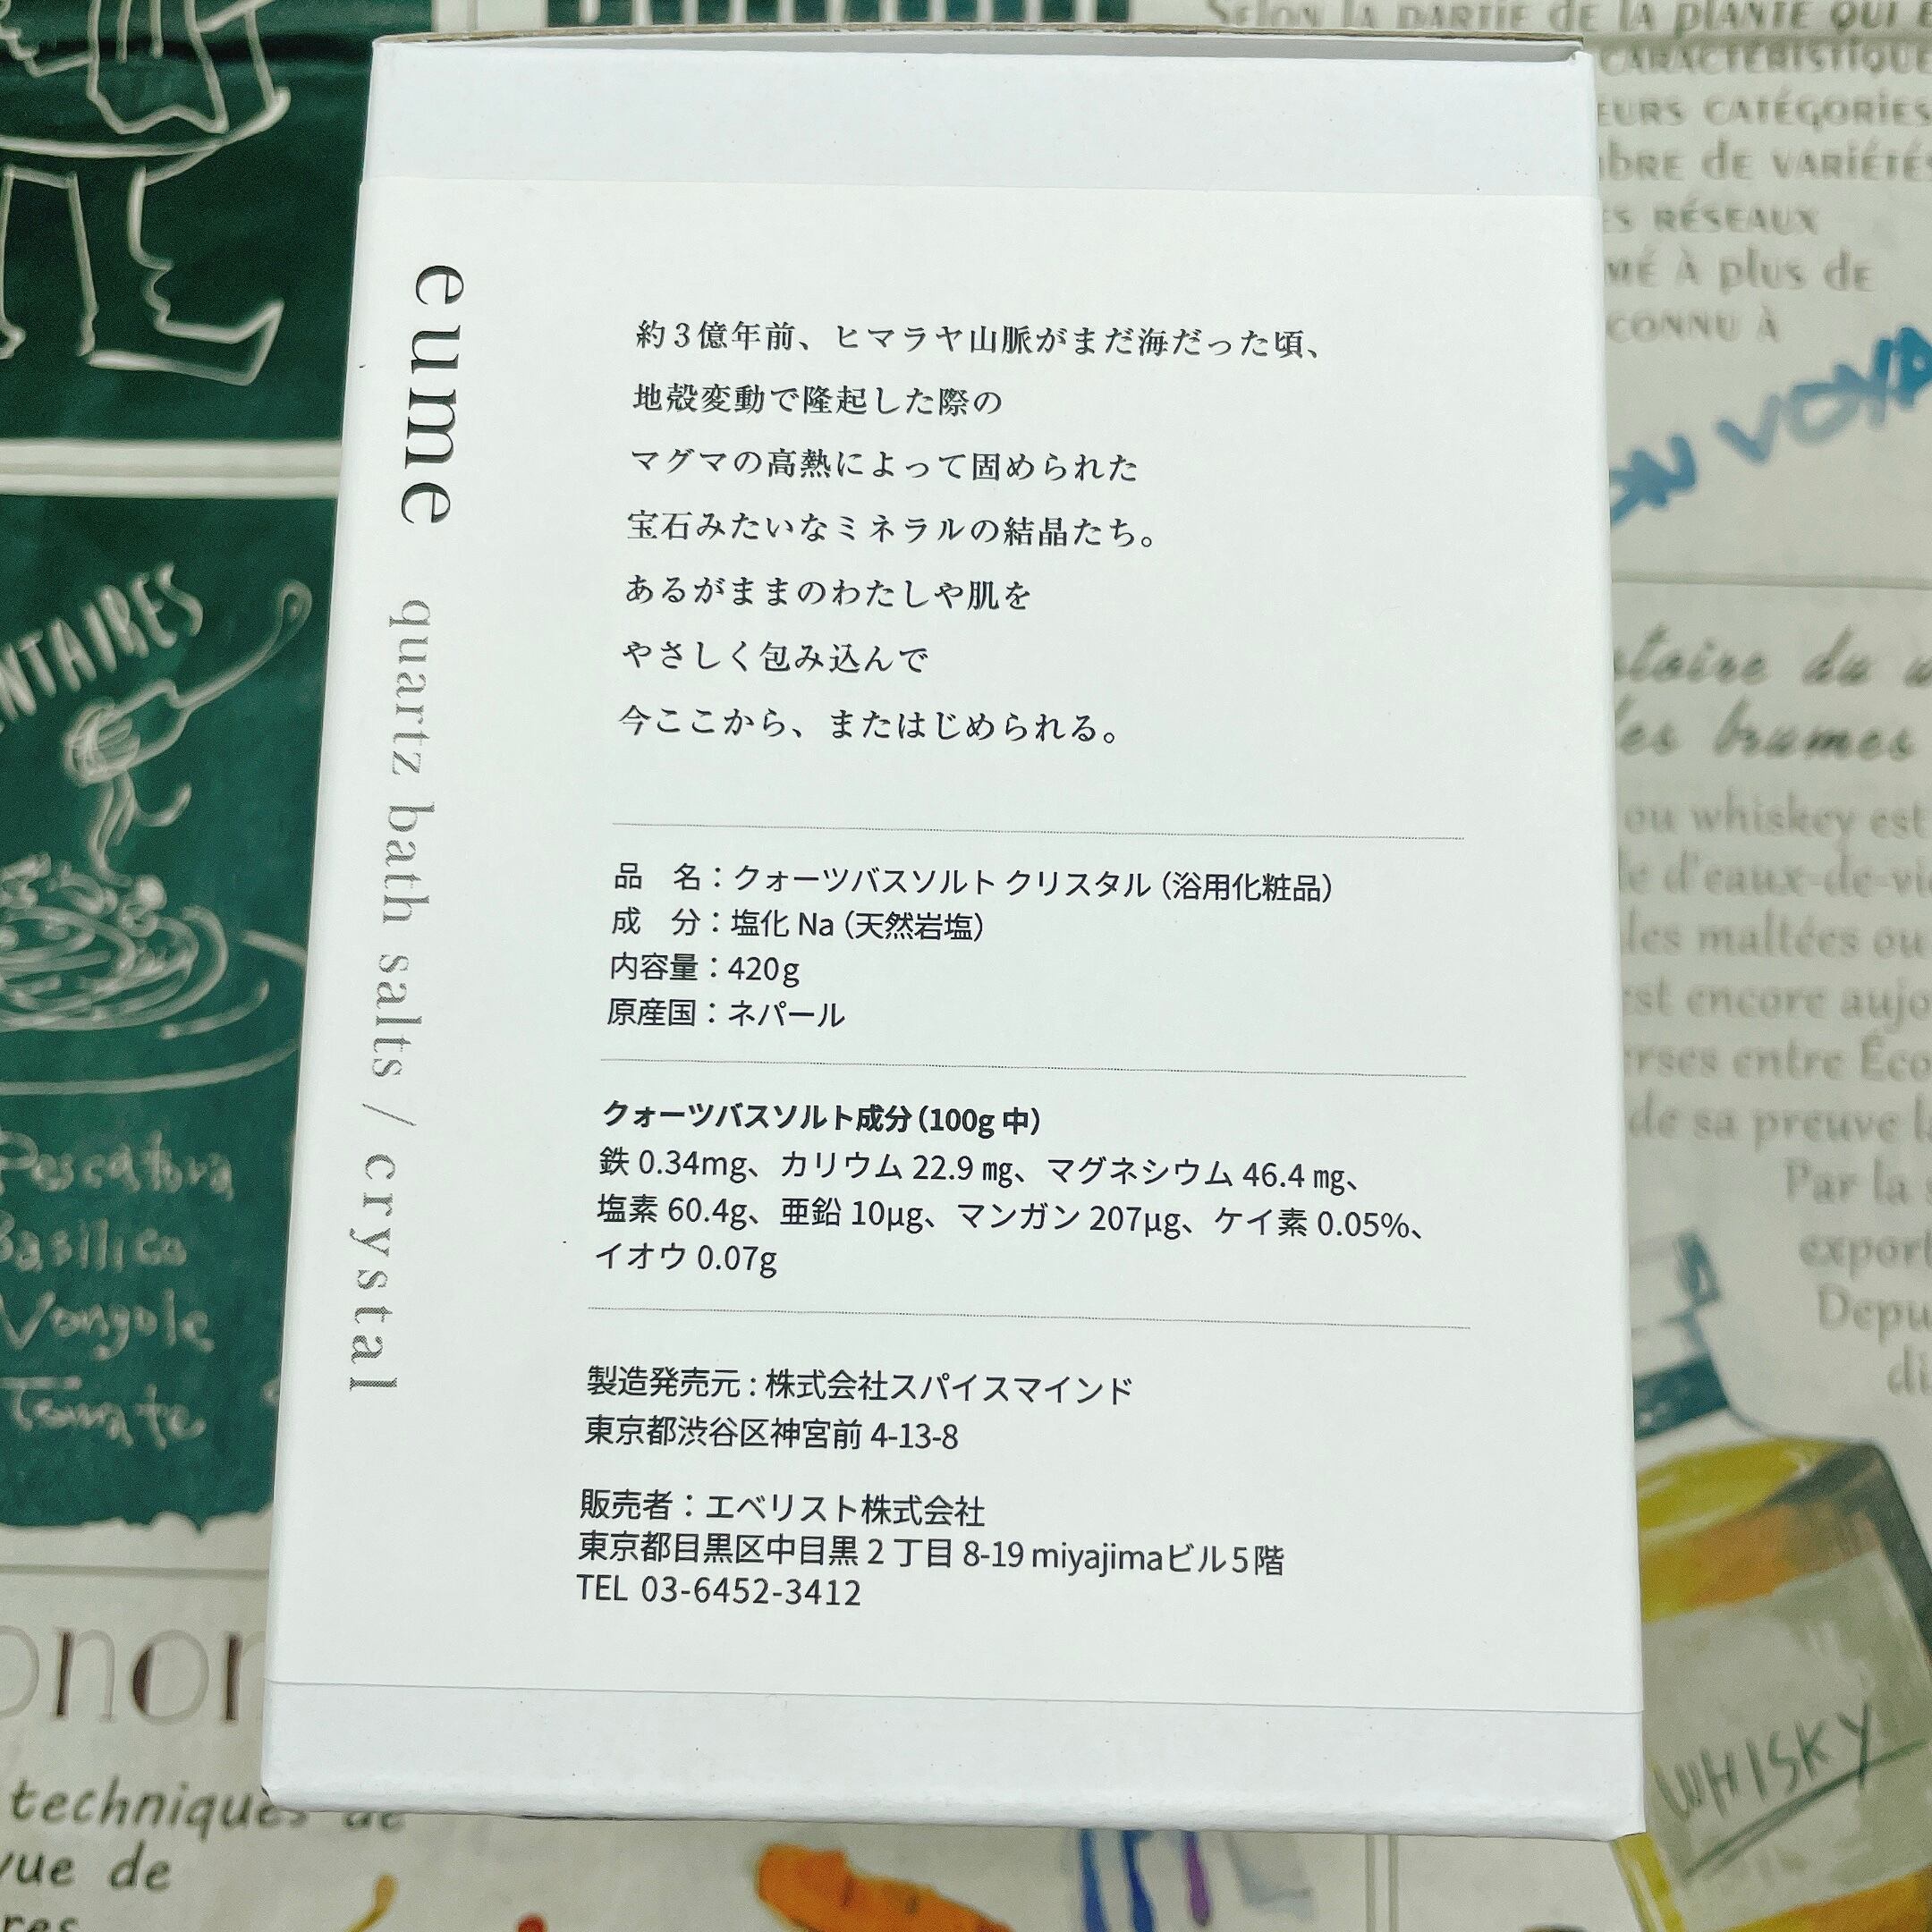 eume
quartz bath salts / crystal
約3億年前、ヒマラヤ山脈がまだ海だった頃、
地殻変動で隆起した際の
マグマの高熱によって固められた
宝石みたいなミネラルの結晶たち。
あるがままのわたしや肌を
やさしく包み込んで
今ここから、またはじめられる。
品　名：クォーツバスソルト クリスタル（浴用化粧品）
成　分：塩化 Na（天然岩塩）
内容量：420g
原産国：ネパール
クォーツバスソルト成分（100g 中）
鉄 0.34mg、カリウム 22.9 ㎎、マグネシウム 46.4 ㎎、
塩素 60.4g、亜鉛 10μg、マンガン 207μg、ケイ素 0.05%、
イオウ 0.07g
製造発売元 : 株式会社スパイスマインド
東京都渋谷区神宮前 4-13-8
販売者：エベリスト株式会社
東京都目黒区中目黒 2 丁目 8-19 miyajimaビル5階
TEL 03-6452-3412
NTAIRES
Pescatora
Basilico
Vongole
Tomate
techniques de
vue de
res
Selon la partie de la plante qui
CARACTÉRISTIQUE
EURS CATÉGORIES
bre de variétés
s réseaux
mé à plus de
connu à
N VOYA
toire du
les brumes
ou whiskey est
e d'eaux-de-vie
les maltées ou
est encore aujo
rses entre Éco
de sa preuve la
Par la
export
Depu
di
WHISKY